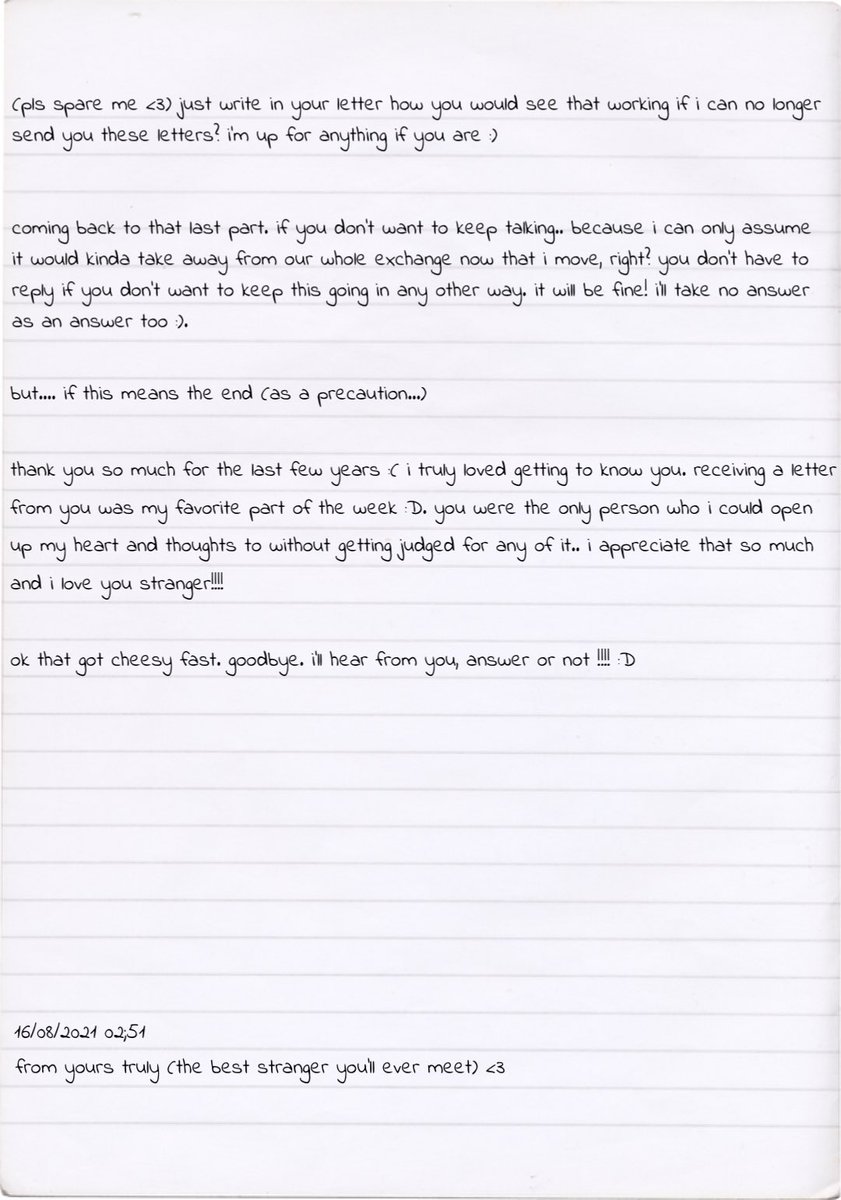 (pls spare me <3) just write in your letter how you would see that working if i can no longer
send you these letters? i'm up for anything if you are :)
coming back to that last part. if you don't want to keep talking.. because i can only assume
it would kinda take away from our whole exchange now that i move, right? you don't have to
reply if you don't want to keep this going in any other way. it will be fine! i'll take no answer
as an answer too :).
but.... if this means the end (as a precaution...)
thank you so much for the last few years :( i truly loved getting to know you. receiving a letter
from you was my favorite part of the week :D. you were the only person who i could open
up my heart and thoughts to without getting judged for any of it.. i appreciate that so much
and i love you stranger!!!!
ok that got cheesy fast. goodbye. i'll hear from you, answer or not !!!! :D
16/08/2021 02;51
from yours truly (the best stranger you'll ever meet) <3